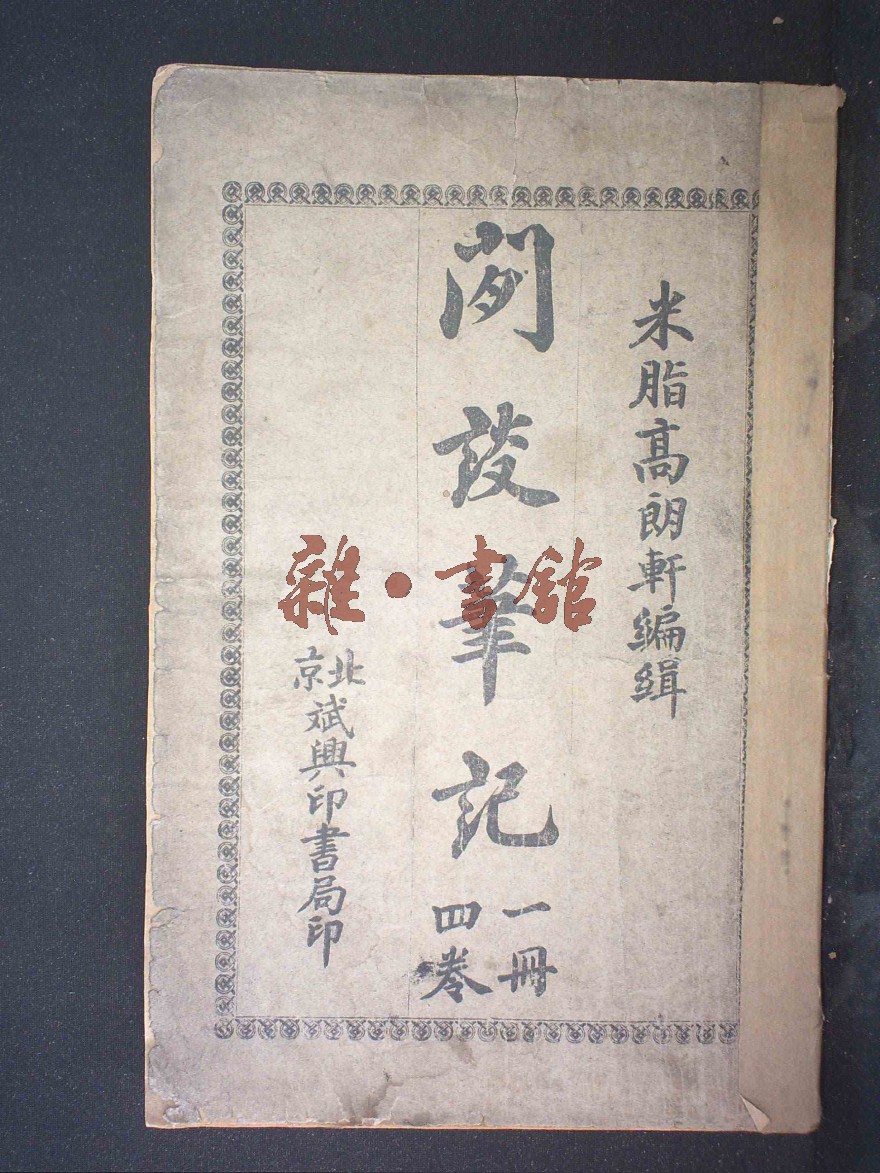 米脂高朗軒編緝
閒談筆記
一冊
四卷
北京
斌興印書局印
雜·書館